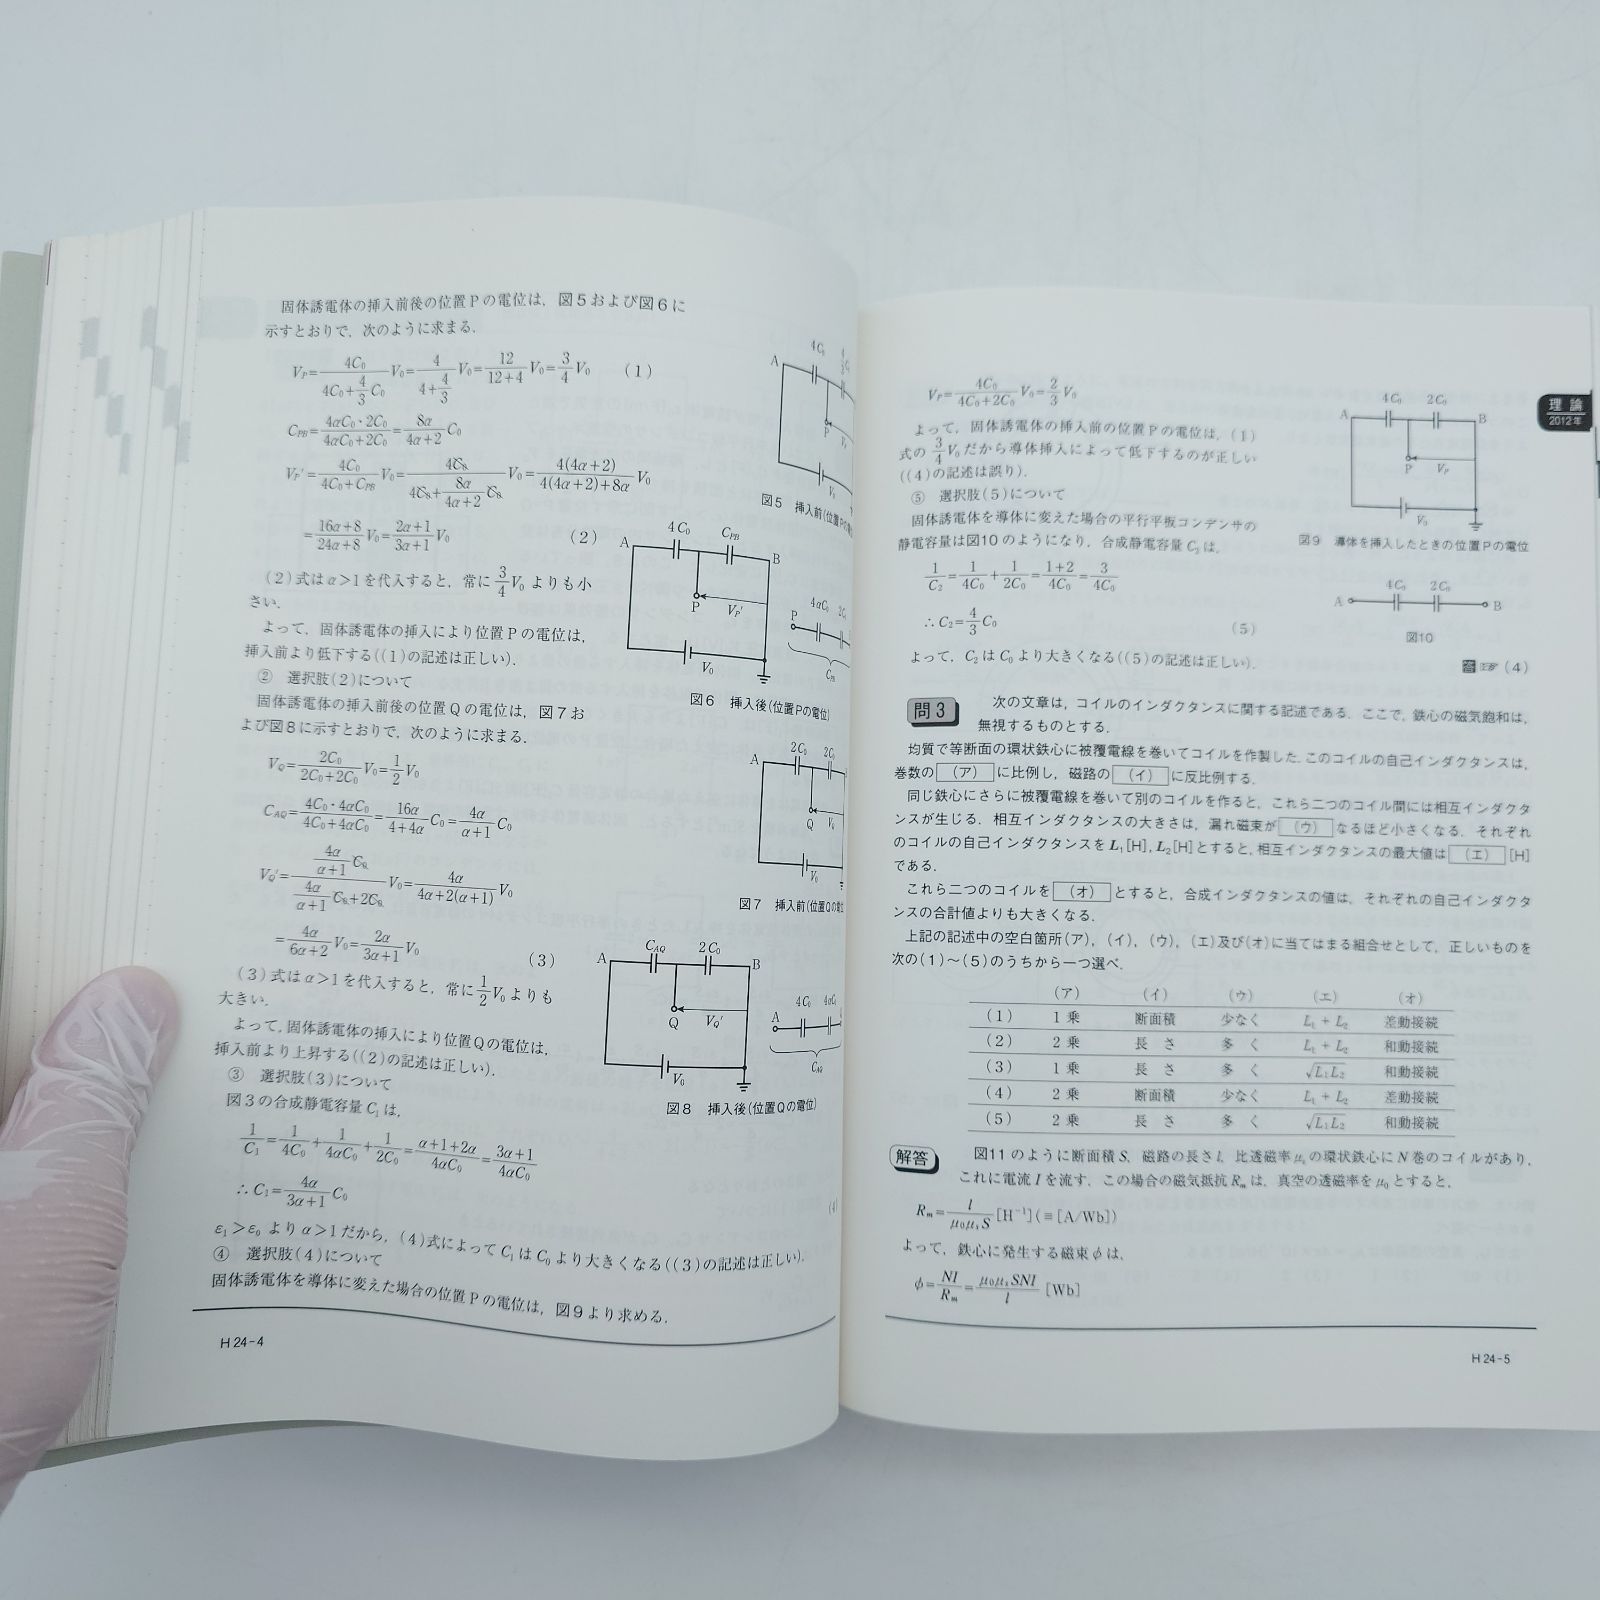 固体誘電体の挿入前後の位置Pの電位は，図5および図6に
示すとおりで，次のように求まる．
V_P=\frac{4C_0}{4C_0+\frac{4}{3}C_0}V_0=\frac{4}{4+\frac{4}{3}}V_0=\frac{12}{12+4}V_0=\frac{3}{4}V_0 (1)
C_{PB}=\frac{4αC_0・2C_0}{4αC_0+2C_0}=\frac{8α}{4α+2}C_0
V_P'=\frac{4C_0}{4C_0+C_{PB}}V_0=\frac{4C_0}{4C_0+\frac{8α}{4α+2}C_0}V_0=\frac{4(4α+2)}{4(4α+2)+8α}V_0
=\frac{16α+8}{24α+8}V_0=\frac{2α+1}{3α+1}V_0 (2)
(2)式はα>1を代入すると，常に\frac{3}{4}V_0よりも小
さい．
よって，固体誘電体の挿入により位置Pの電位は，
挿入前より低下する((1)の記述は正しい)．
② 選択肢(2)について
固体誘電体の挿入前後の位置Qの電位は，図7お
よび図8に示すとおりで，次のように求まる．
V_Q=\frac{2C_0}{2C_0+2C_0}V_0=\frac{1}{2}V_0
C_{AQ}=\frac{4C_0・4αC_0}{4C_0+4αC_0}=\frac{16α}{4+4α}C_0=\frac{4α}{α+1}C_0
V_Q'=\frac{\frac{4α}{α+1}C_0}{\frac{4α}{α+1}C_0+2C_0}V_0=\frac{4α}{4α+2(α+1)}V_0
=\frac{4α}{6α+2}V_0=\frac{2α}{3α+1}V_0 (3)
(3)式はα>1を代入すると，常に\frac{1}{2}V_0よりも
大きい．
よって，固体誘電体の挿入により位置Qの電位は，
挿入前より上昇する((2)の記述は正しい)．
③ 選択肢(3)について
図3の合成静電容量C_1は，
\frac{1}{C_1}=\frac{1}{4C_0}+\frac{1}{4αC_0}+\frac{1}{2C_0}=\frac{α+1+2α}{4αC_0}=\frac{3α+1}{4αC_0}
∴C_1=\frac{4α}{3α+1}C_0
ε_1>ε_0よりα>1だから，(4)式によってC_1はC_0より大きくなる((3)の記述は正しい)．
④ 選択肢(4)について
固体誘電体を導体に変えた場合の位置Pの電位は，図9より求める．
H24-4
4C_0
A
P
V_0
図5 挿入前(位置Pの
4C_0 C_{PB}
A B
P V_P'
V_0
P 4αC_0 2C_0
C_{PB}
図6 挿入後(位置Pの電位)
2C_0 2C_0
A
Q
V_0
図7 挿入前(位置Qの電位
C_{AQ} 2C_0
A B
Q V_Q'
V_0
4C_0 4αC_0
A
C_{AQ}
図8 挿入後(位置Qの電位)
理論
2012年
V_P=\frac{4C_0}{4C_0+2C_0}V_0=\frac{2}{3}V_0
よって，固体誘電体の挿入前の位置Pの電位は，(1)
式の\frac{3}{4}V_0だから導体挿入によって低下するのが正しい
((4)の記述は誤り)．
⑤ 選択肢(5)について
固体誘電体を導体に変えた場合の平行平板コンデンサの
静電容量は図10のようになり，合成静電容量C_2は，
\frac{1}{C_2}=\frac{1}{4C_0}+\frac{1}{2C_0}=\frac{1+2}{4C_0}=\frac{3}{4C_0}
∴C_2=\frac{4}{3}C_0 (5)
よって，C_2はC_0より大きくなる((5)の記述は正しい)．
4C_0 2C_0
A B
P V_P
V_0
図9 導体を挿入したときの位置Pの電位
4C_0 2C_0
A B
図10
答☞(4)
問3 次の文章は，コイルのインダクタンスに関する記述である．ここで，鉄心の磁気飽和は，
無視するものとする．
均質で等断面の環状鉄心に被覆電線を巻いてコイルを作製した．このコイルの自己インダクタンスは，
巻数の (ア) に比例し，磁路の (イ) に反比例する．
同じ鉄心にさらに被覆電線を巻いて別のコイルを作ると，これら二つのコイル間には相互インダクタ
ンスが生じる．相互インダクタンスの大きさは，漏れ磁束が (ウ) なるほど小さくなる．それぞれ
のコイルの自己インダクタンスをL_1[H]，L_2[H]とすると，相互インダクタンスの最大値は (エ) [H]
である．
これら二つのコイルを (オ) とすると，合成インダクタンスの値は，それぞれの自己インダクタ
ンスの合計値よりも大きくなる．
上記の記述中の空白箇所(ア)，(イ)，(ウ)，(エ)及び(オ)に当てはまる組合せとして，正しいものを
次の(1)～(5)のうちから一つ選べ．
(ア) (イ) (ウ) (エ) (オ)
(1) 1乗 断面積 少なく L_1+L_2 差動接続
(2) 2乗 長さ 多く L_1+L_2 和動接続
(3) 1乗 長さ 多く \sqrt{L_1L_2} 和動接続
(4) 2乗 断面積 少なく L_1+L_2 差動接続
(5) 2乗 長さ 多く \sqrt{L_1L_2} 和動接続
解答 図11のように断面積S，磁路の長さl，比透磁率μ_sの環状鉄心にN巻のコイルがあり，
これに電流Iを流す．この場合の磁気抵抗R_mは，真空の透磁率をμ_0とすると，
R_m=\frac{l}{μ_0μ_sS}[H^{-1}](≡[A/Wb])
よって，鉄心に発生する磁束φは，
φ=\frac{NI}{R_m}=\frac{μ_0μ_sSNI}{l} [Wb]
H24-5